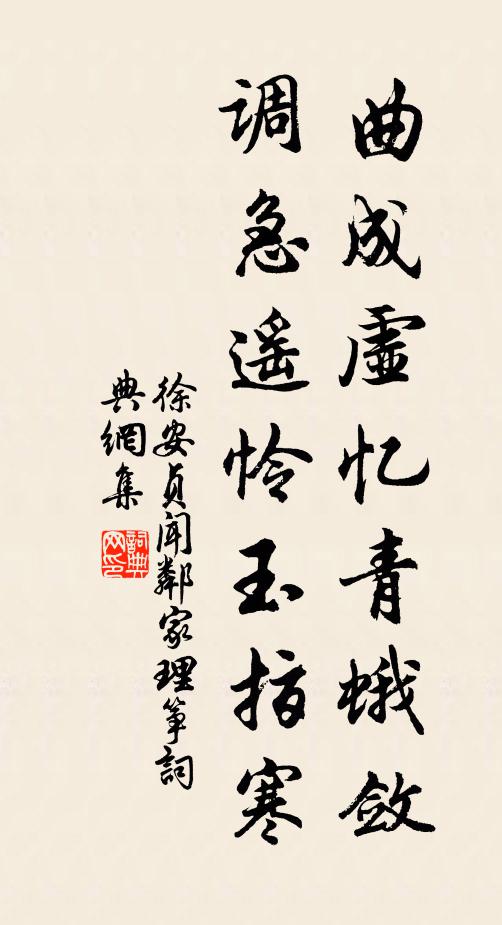 曲成虛忆青蛾敛
调急遥怜玉指寒
徐安贞闻鄰家理筝詞
典網集
詞典网印